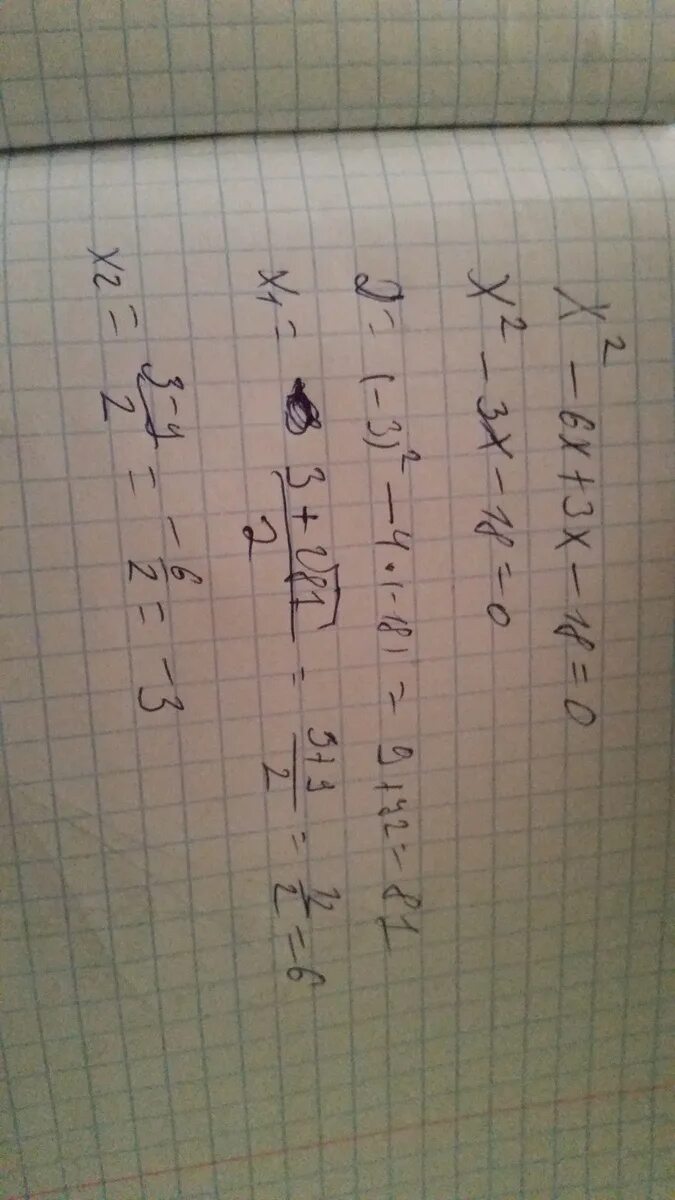 x² - 6x + 3x - 18 = 0
x² - 3x - 18 = 0
D = (-3)² - 4·(-18) = 9 + 72 = 81
x₁ = (3 + √81)/2 = (3+9)/2 = 12/2 = 6
x₂ = (3-9)/2 = -6/2 = -3